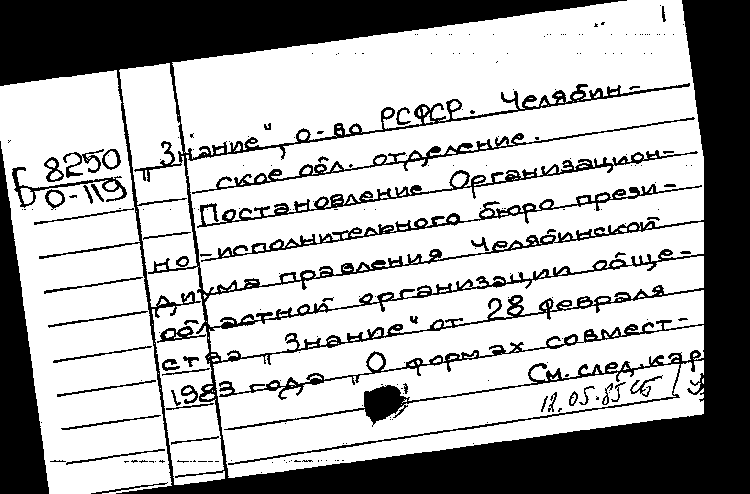 1
Б 8250
О-119
„Знание", о-во РСФСР. Челябин-
ское обл. отделение.
Постановление Организацион-
но-исполнительного бюро прези-
диума правления Челябинской
областной организации обще-
ства „Знание" от 28 февраля
1983 года „О формах совмест-
См. след. кар
12.05.85